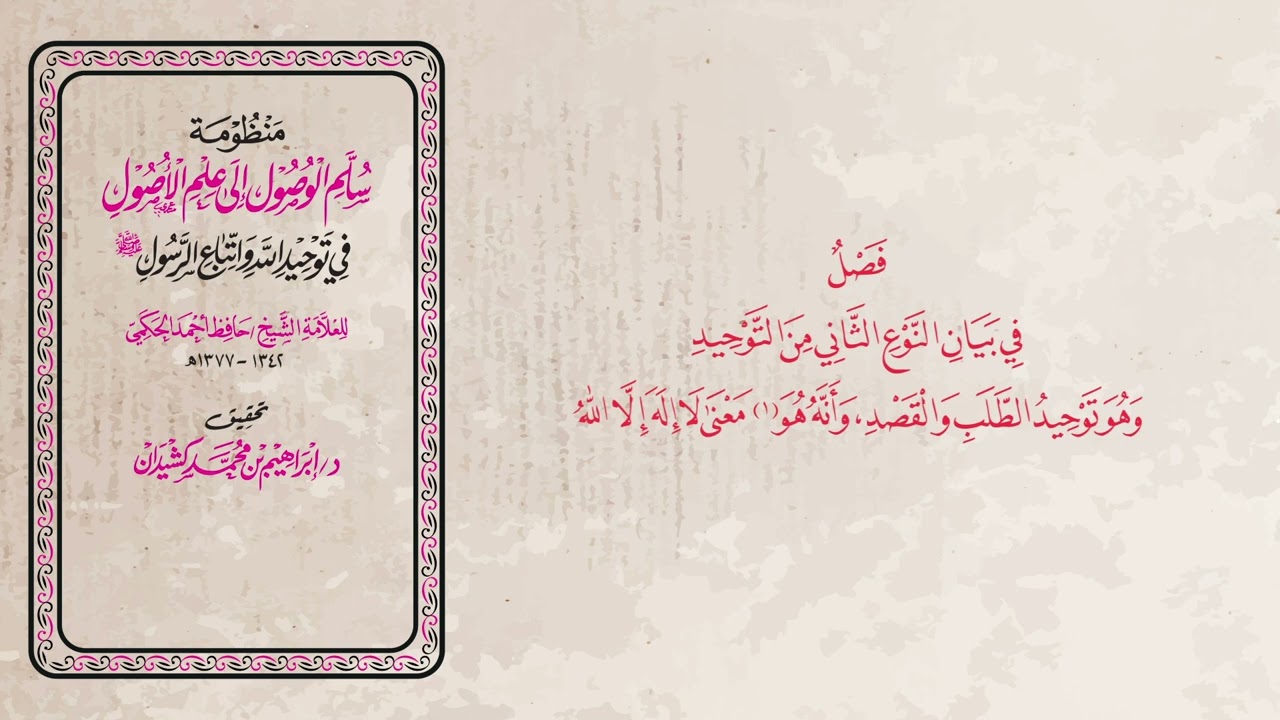 مَنْظُوْمَة
سُلَّمِ الْوُصُوْلِ إِلَى عِلْمِ الْأُصُوْلِ
فِي تَوْحِيْدِ اللَّهِ وَاتِّبَاعِ الرَّسُوْلِ ﷺ
لِلعَلَّامَةِ الشَّيْخِ / حَافِظ أَحْمَد الْحَكَمِيّ
١٣٤٢ - ١٣٧٧هـ
تحقِيق
د / إِبْرَاهِيْم بْن مُحَمَّد كَشِيْدَان
فَصْلٌ
فِي بَيَانِ النَّوْعِ الثَّانِي مِنَ التَّوْحِيدِ
وَهُوَ تَوْحِيدُ الطَّلَبِ وَالْقَصْدِ، وَأَنَّهُ هُوَ (١) مَعْنَى لَا إِلَهَ إِلَّا اللهُ